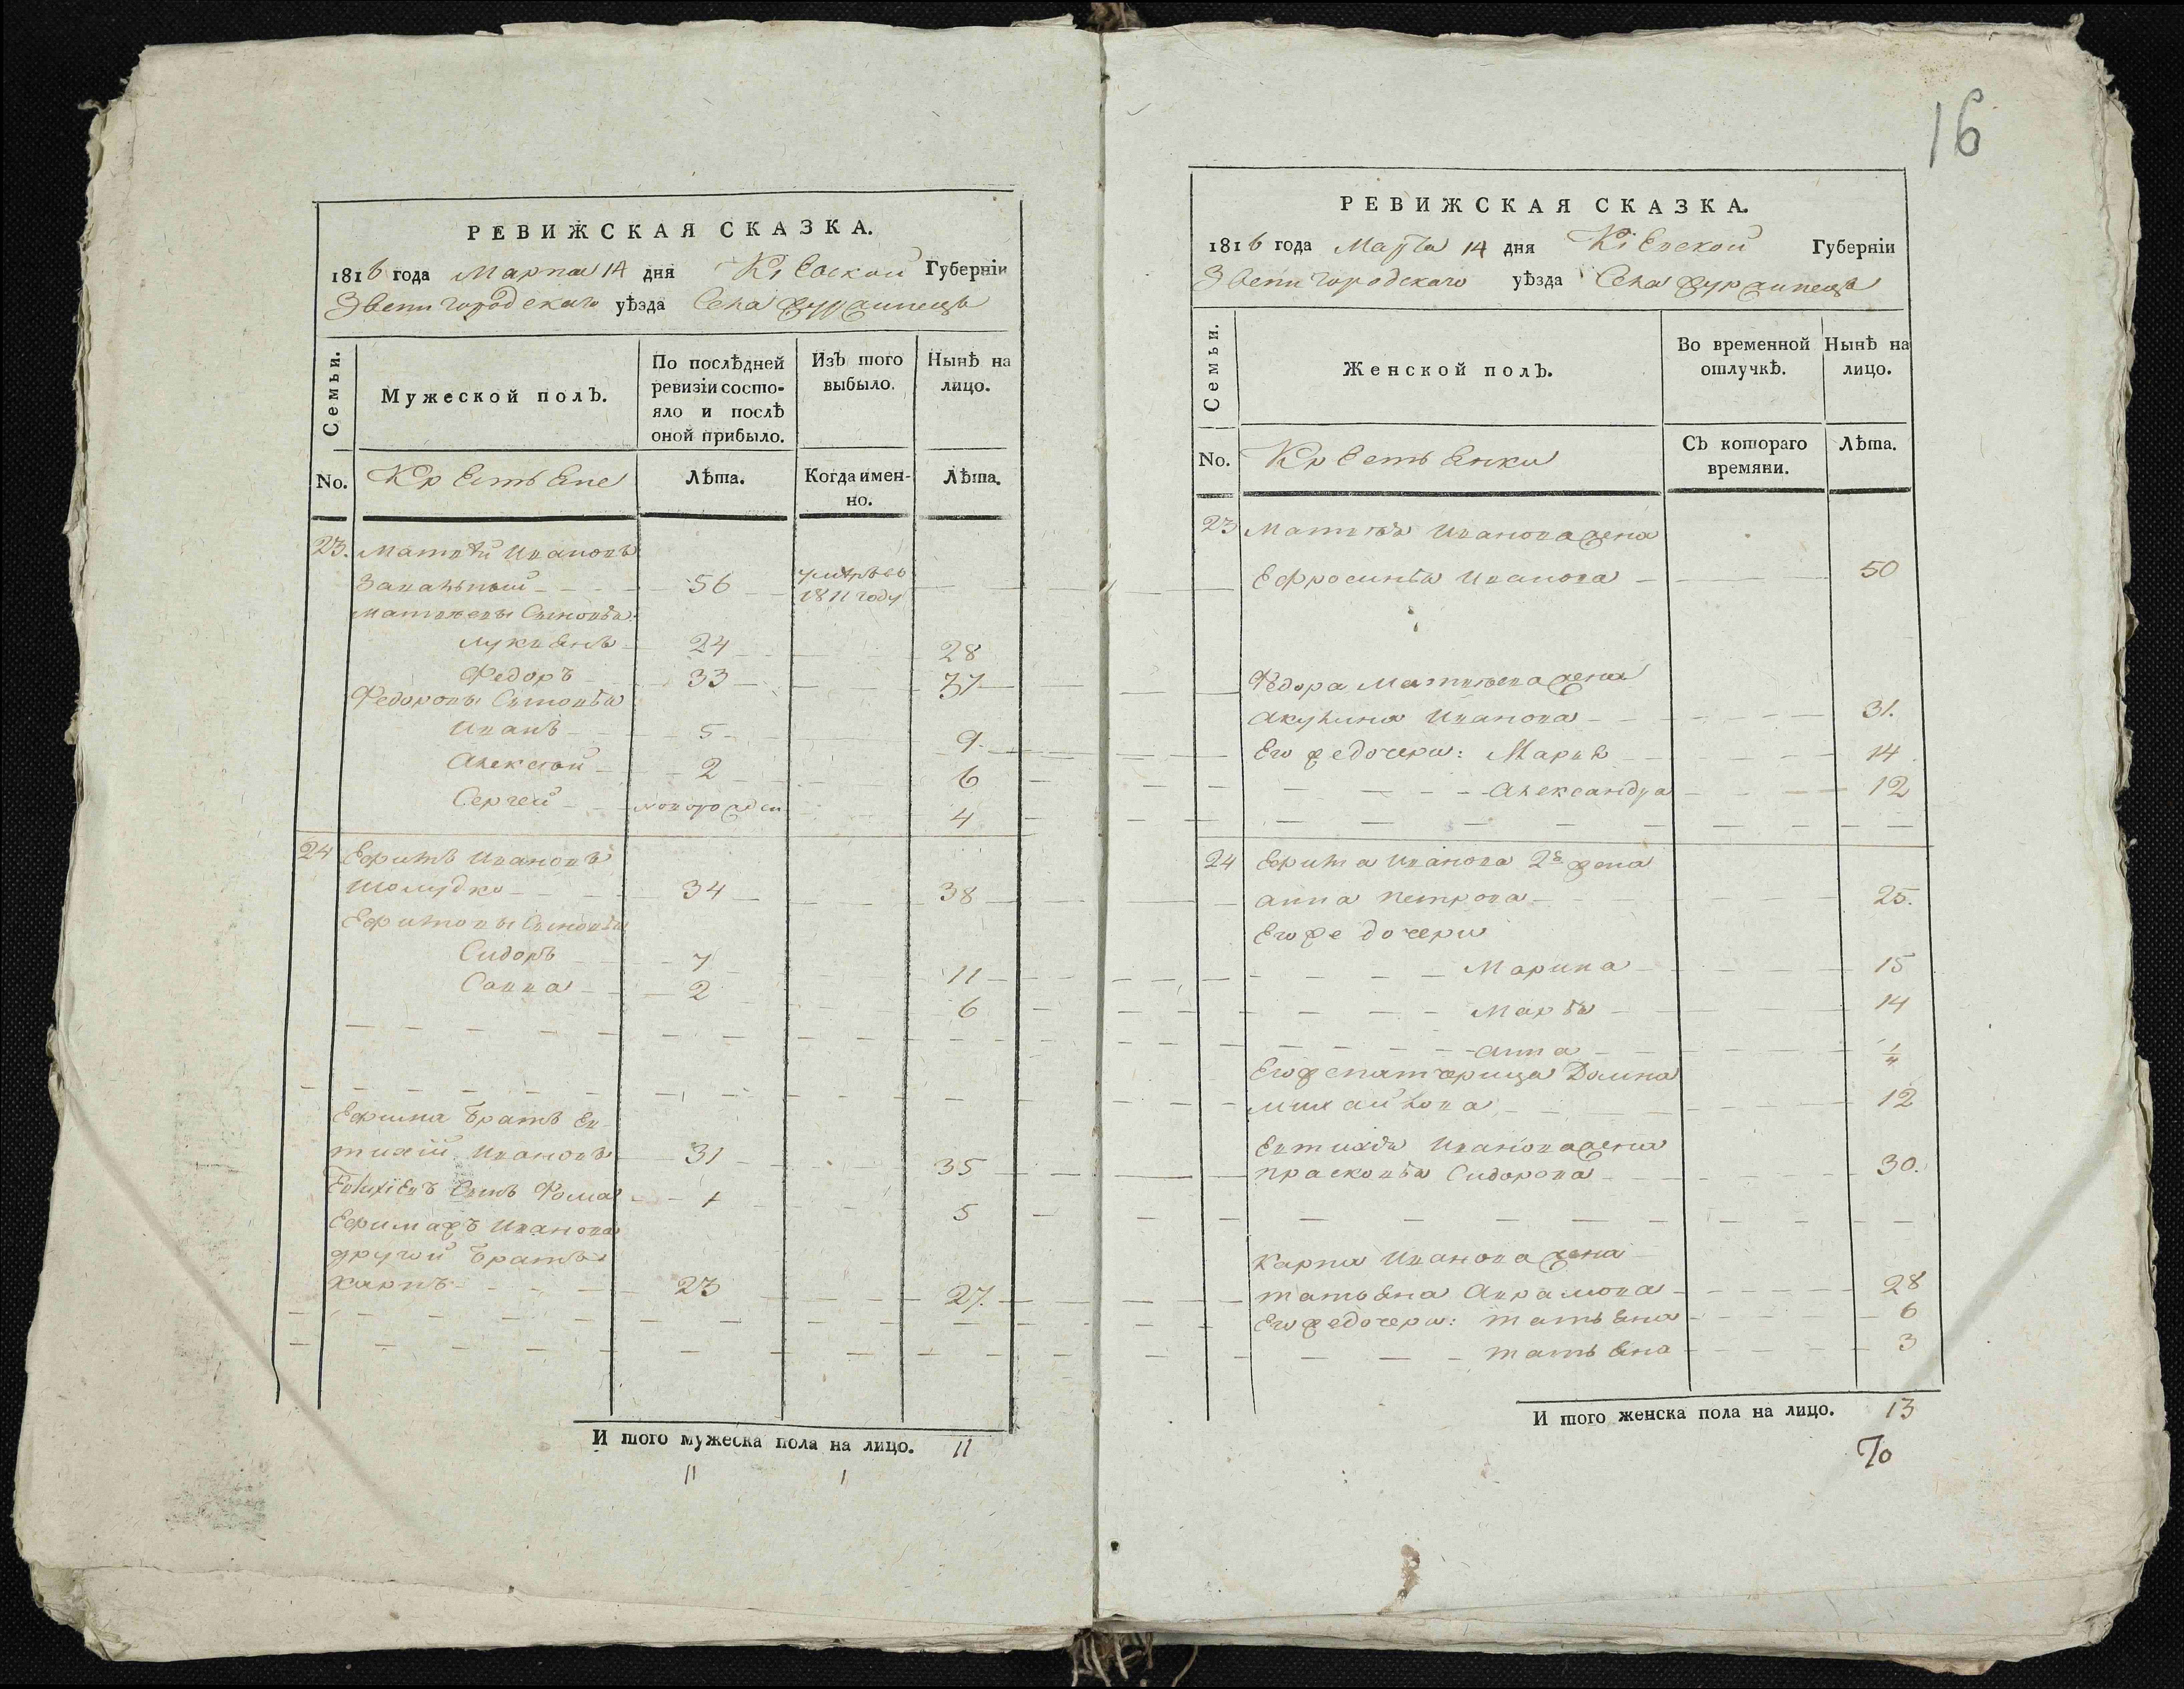 16
РЕВИЖСКАЯ СКАЗКА.
1816 года Марта 14 дня Кіевской Губерніи
Звенигородскаго уѣзда Села Журжинецъ
Семьи.
Мужеской полъ.
По послѣдней ревизіи состо-
яло и послѣ
оной прибыло.
Изъ того выбыло.
Нынѣ на лицо.
No.
Крестьяне
Лѣта.
Когда имен-
но.
Лѣта.
23. Матвѣй Ивановъ
Запальный 56 умѣръ въ 1811 году
Матвѣевы Сыновья
Лукьянъ 24 28
Федоръ 33 37
Федоровы Сыновья
Иванъ 5 9
Алексѣй 2 6
Сергей новорожден 4
24 Ефимъ Ивановъ
Шолудко 34 38
Ефимовы Сыновья
Сидоръ 7 11
Савва 2 6
Ефима Братъ Ев-
тихій Ивановъ 31 35
Евтихіевъ Сынъ Фома 1 5
Ефима жъ Иванова
другой Братъ
Карпъ 23 27.
И того мужеска пола на лицо. 11
11 1
РЕВИЖСКАЯ СКАЗКА.
1816 года Марта 14 дня Кіевской Губерніи
Звенигородскаго уѣзда Села Журжинецъ
Семьи.
Женской полъ.
Во временной отлучкѣ.
Нынѣ на лицо.
No.
Крестьянки
Съ котораго времяни.
Лѣта.
23 Матвѣя Иванова жена
Ефросинья Иванова 50
Федора Матвѣева жена
Акулина Иванова 31.
Его же дочери: Марья 14
Александра 12
24 Ефима Иванова 2я жена
Анна Петрова 25.
Его же дочери
Марина 15
Марья 14
Анна 1/4
Его же патчерица Домна
Михайлова 12
Евтихія Иванова жена
Прасковья Сидорова 30.
Карпа Иванова жена
Татьяна Аврамова 28
Его же дочери: Татьяна 6
Татьяна 3
И того женска пола на лицо. 13